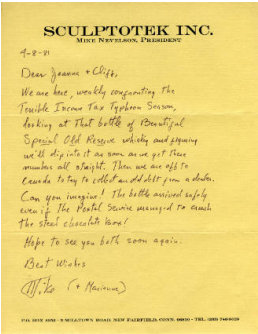 SCULPTOTEK INC.
MIKE NEVELSON, PRESIDENT
4-8-81
Dear Jeanne + Cliff,
We are here, weakly confronting the
Terrible Income Tax Typhoon Season,
looking at that bottle of Beautiful
Special Old Reserve whisky and figuring
we'll dip into it as soon as we get these
numbers all straight. Then we are off to
Canada to try to collect an old debt from a dealer.
Can you imagine! The bottle arrived safely
even if the Postal Service managed to crush
the steel chocolate box!
Hope to see you both soon again.
Best Wishes
Mike (+ Marianne)
NEW FAIRFIELD, CONN. 06810 - TEL.